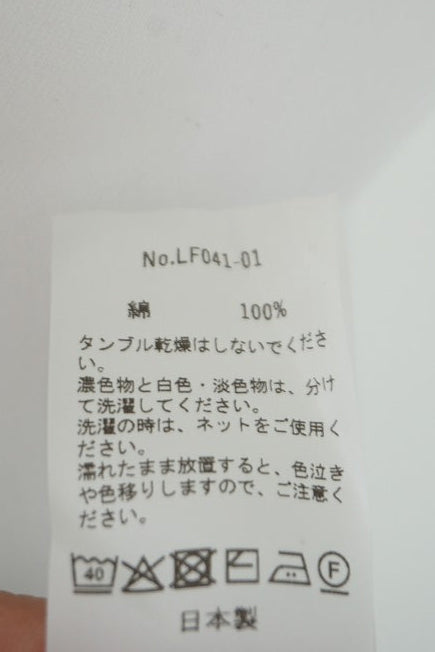 No.LF041-01
綿 100%
タンブル乾燥はしないでくださ
い。
濃色物と白色・淡色物は、分け
て洗濯してください。
洗濯の時は、ネットをご使用く
ださい。
濡れたまま放置すると、色泣き
や色移りしますので、ご注意く
ださい。
40 F
日本製